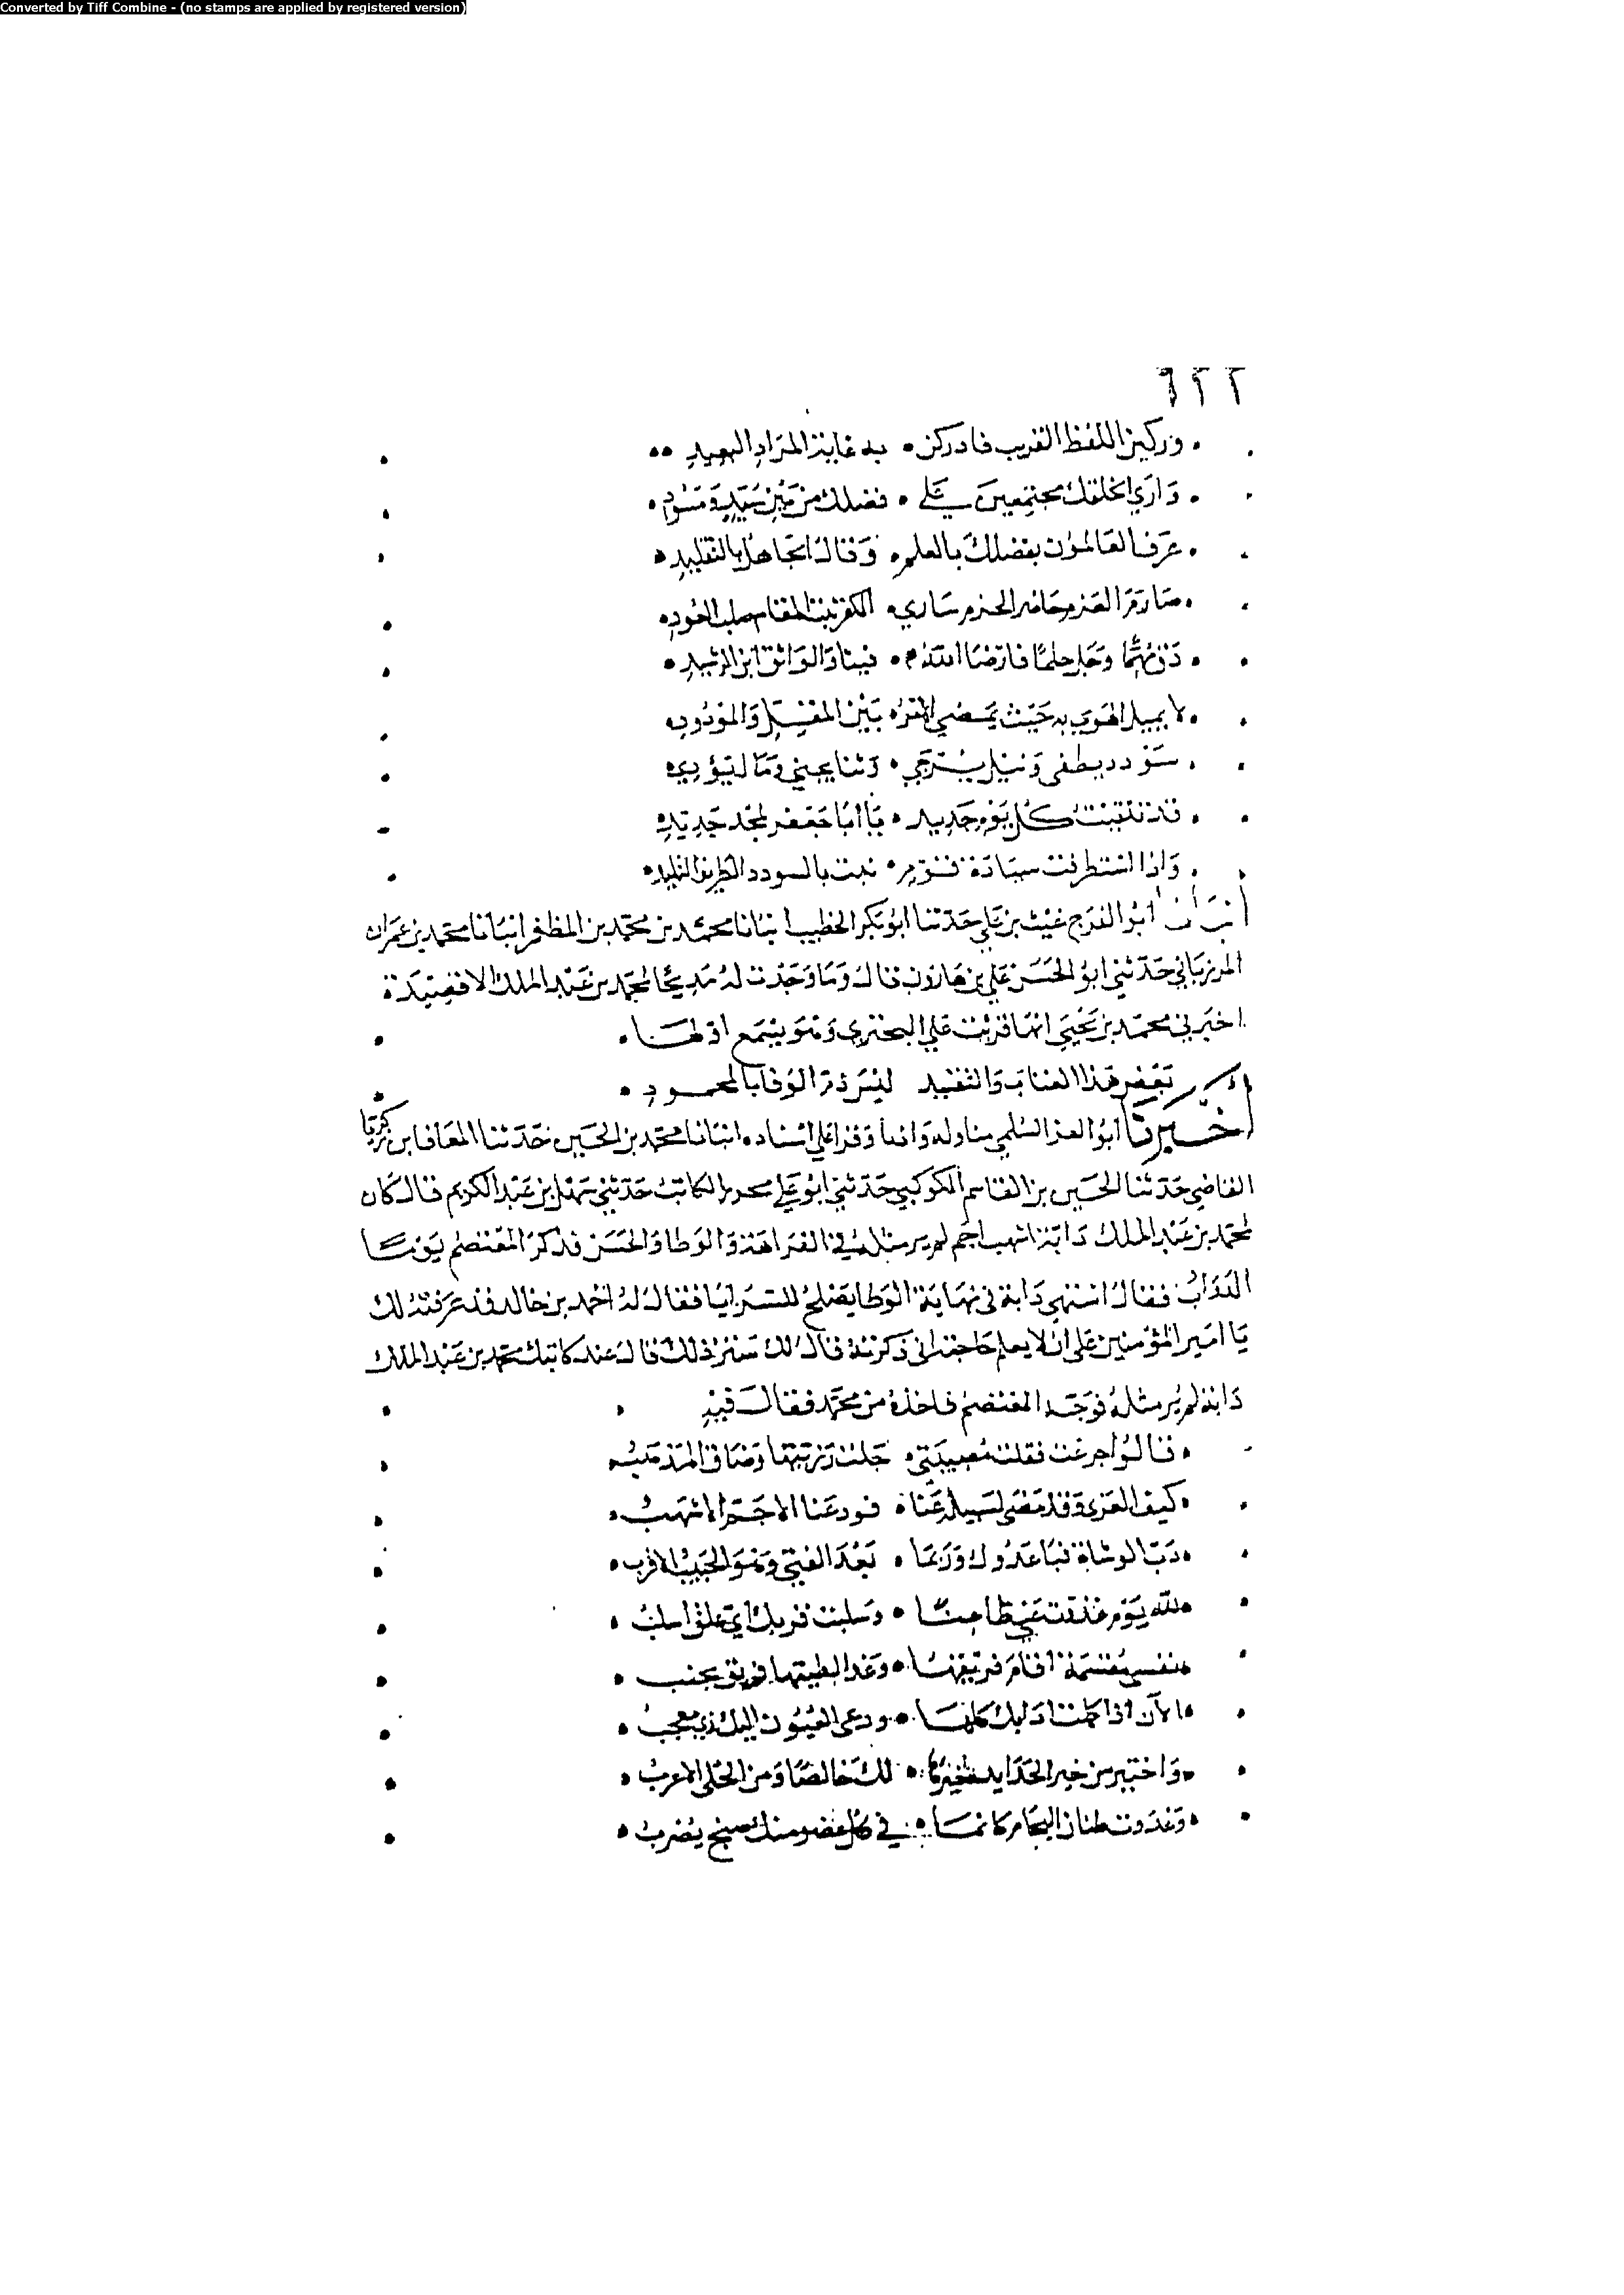 Converted by Tiff Combine - (no stamps are applied by registered version)
٦٢٢
وركبن اللفظ القريب فادركن به غاية المراد البعيد
وارى الخلق مجتمعين على فضلك من بين سيد ومسود
عرف العالمون بفضلك بالعلم وقال الجاهل بالتقليد
صارم العزم حاضر الحزم ساري الفكر ثبت المقام صلب العود
دق فهما وجل حلما فارضا الله فينا والواثق ابن الرشيد
لا يميل الهوى به حيث يمضي الامر بين المقلي والمودود
سودد يصطفى ونيل يرتجى وثنا يحيى ومال يودي
قد تلقيت كل يوم جديد يا ابا جعفر لمجد جديد
واذا استطرفت سيادة قوم نبت بالسودد الطريف التليد
انبأنا ابو الفرج غيث بن علي حدثنا ابو بكر الخطيب انبانا محمد بن محمد بن المظفر انبانا محمد بن عمران
المرزباني حدثني ابو الحسن علي بن هارون قال وما وجدت له مديحا لمحمد بن عبد الملك الا قصيدة
اخبرني محمد بن يحيى انها قريت على البحتري وهو يسمع اولها
بعض هذا العتاب والتفنيد ليس ذم الوفا بالمحمود
اخبرنا ابو العز السلمي مناولة واذنا وقرا علي اسناده انبانا محمد بن الحسين حدثنا المعافا بن زكريا
القاضي حدثنا الحسين بن القاسم الكوكبي حدثني ابو علي محرر الكاتب حدثني سهل بن عبد الكريم قال كان
لمحمد بن عبد الملك دابة اشهب احم لم ير مثله في الفراهة والوطا والحسن فذكر المعتصم يوما
الدواب فقال اشتهي دابة في نهاية الوطا يصلح للسرايا فقال له احمد بن خالد قد عرفته لك
يا امير المؤمنين على ان لا يعلم صاحبه اني ذكرته قال لك ستر ذلك قال عند كاتبك محمد بن عبد الملك
دابة لم ير مثله فوجه المعتصم فاخذه من محمد فقال فيه
قالوا جزعت فقلت مصيبتي جلت رزيتها وضاق المذهب
كيف العزى وقد مضى لسبيله عنا فودعنا الاحم الاشهب
دب الوشاة فباعدوك وربما بعد الفتى وهو الحبيب الاقرب
لله يوم غدوت عني ظاعنا وسلبت قربك اي علق اسلب
نفسي مقسمة اقام فريقها وغدا لطيتها فريق يجنب
الآن اذ كملت اداتك كلها ودعى العيون اليك زي معجب
واختير من خير الحدايد خيرها لك خالصا ومن الحلي الاغرب
وغدوت طنان اللجام كانما في كل عضو منك صنج يضرب